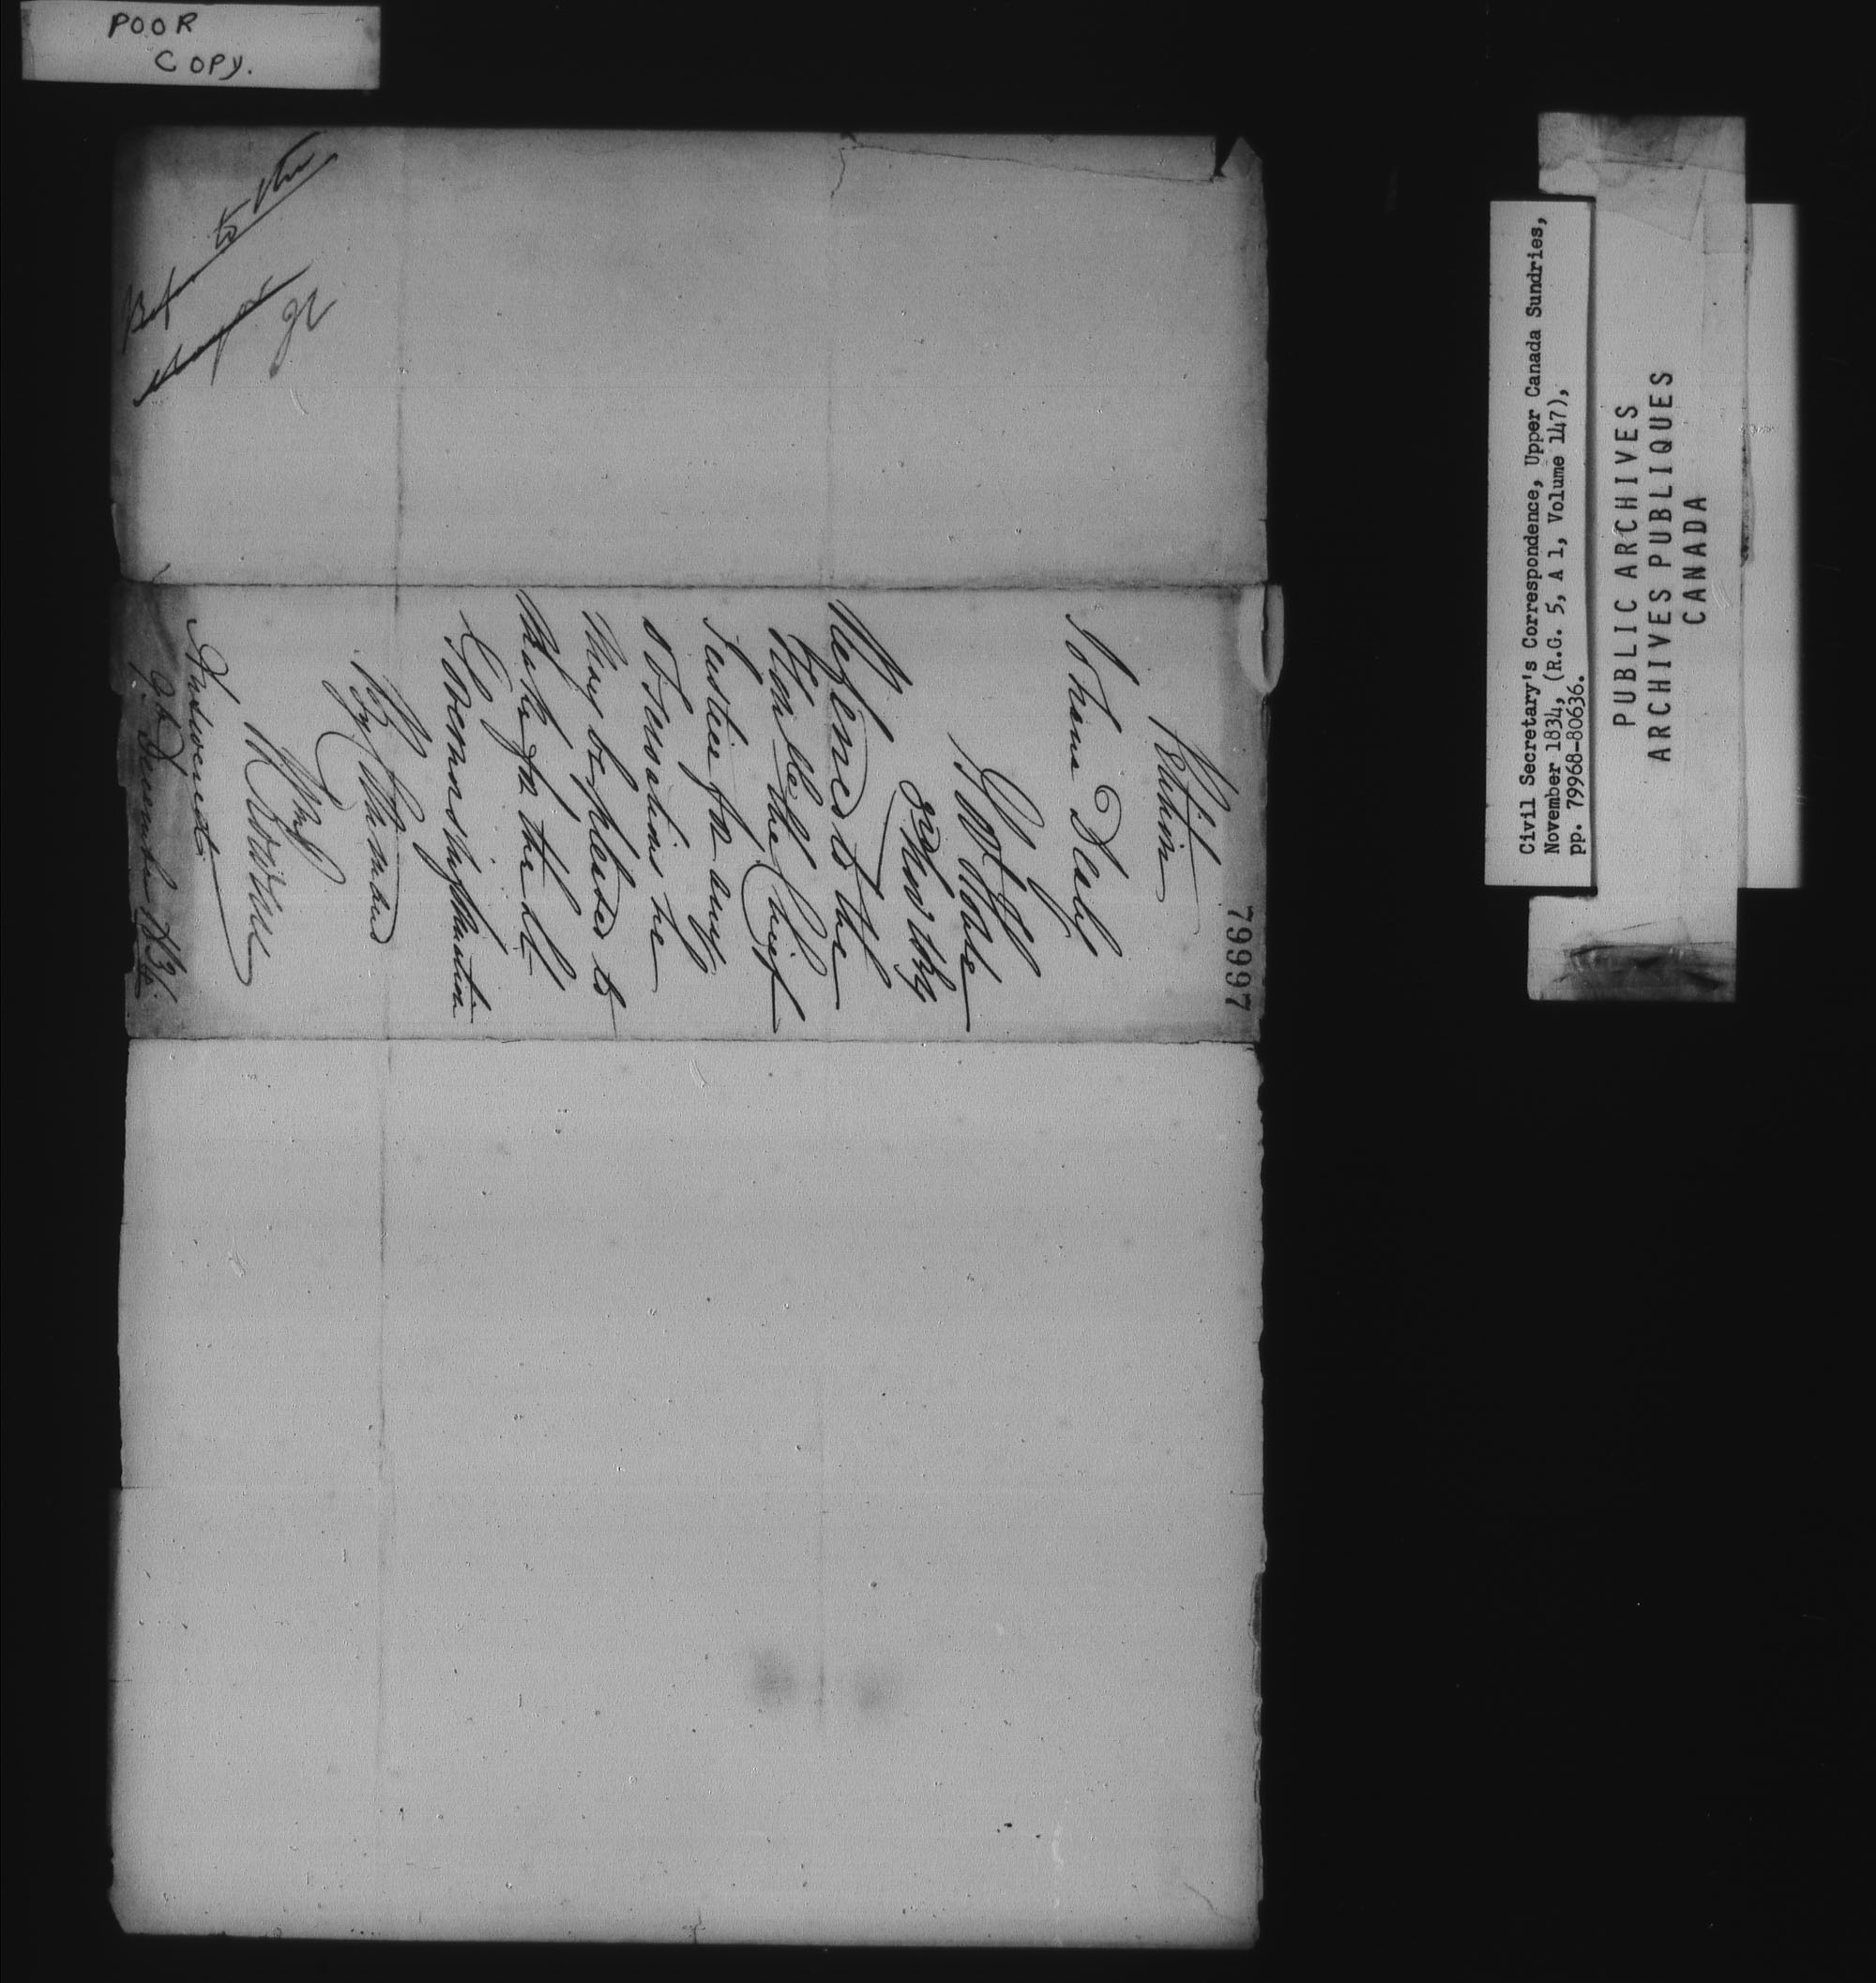 POOR
COPY.
79997
Petition
Johana Daly
Goal
3rd Nov 1834
Referred to the
Honble the Chief
Justice for any
observations he
may be pleased to
make for the Lt
Governors information
By Command
Wm Rowan
Answered
9th December 1834
to the
Civil Secretary's Correspondence, Upper Canada Sundries,
November 1834, (R.G. 5, A 1, Volume 147),
pp. 79968-80636.
PUBLIC ARCHIVES
ARCHIVES PUBLIQUES
CANADA